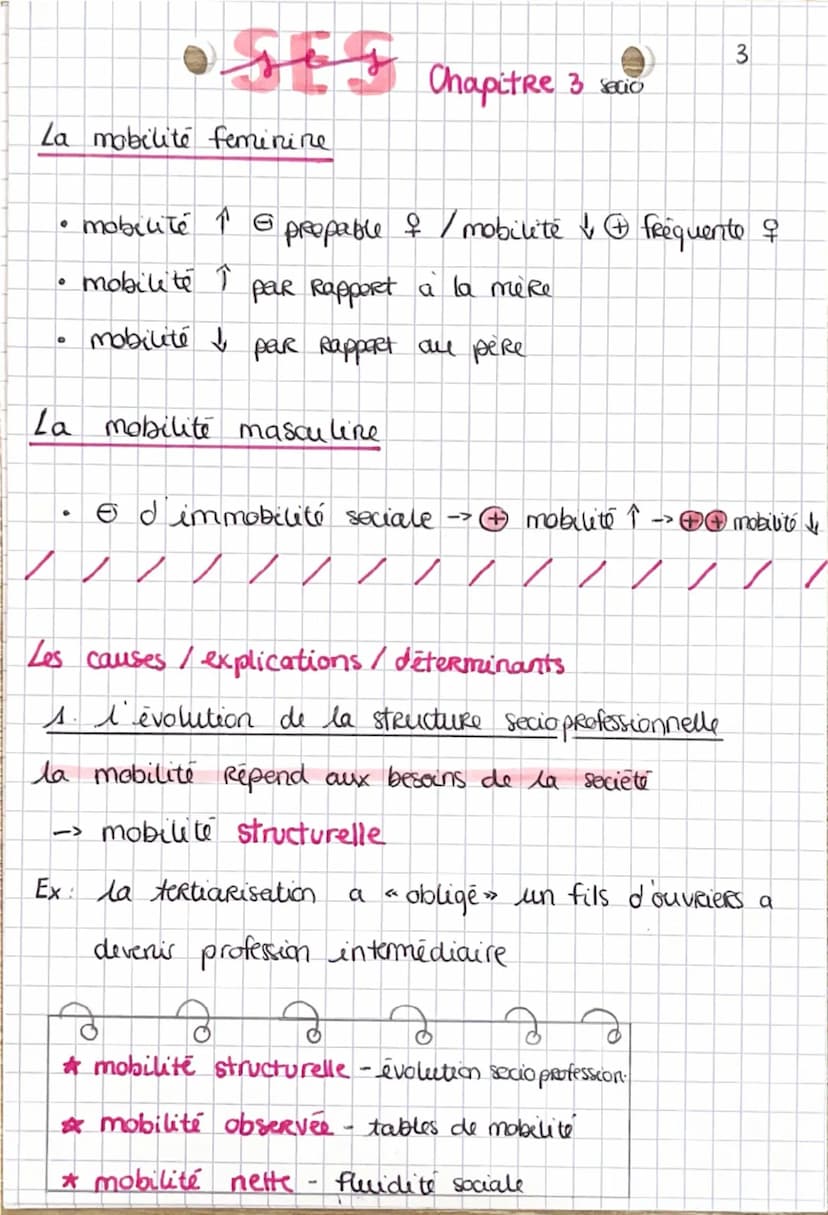 SES
ses
Chapitre 3 socio
3
La mobilité feminine
• mobilité ↑ ⊖ propable ♀ / mobilité ↓ ⊕ fréquente ♀
• mobilité ↑ par rapport à la mère
• mobilité ↓ par rapport au père
La mobilité masculine
• ⊖ d'immobilité sociale -> ⊕ mobilité ↑ -> ⊕⊕ mobilité ↓
Les causes / explications / déterminants
1. l'évolution de la structure socioprofessionnelle
la mobilité répond aux besoins de la société
-> mobilité structurelle
Ex: la tertiarisation a « obligé » un fils d'ouvriers a
devenir profession intermédiaire
★ mobilité structurelle - évolution socioprofession.
★ mobilité observée - tables de mobilité
★ mobilité nette - fluidité sociale